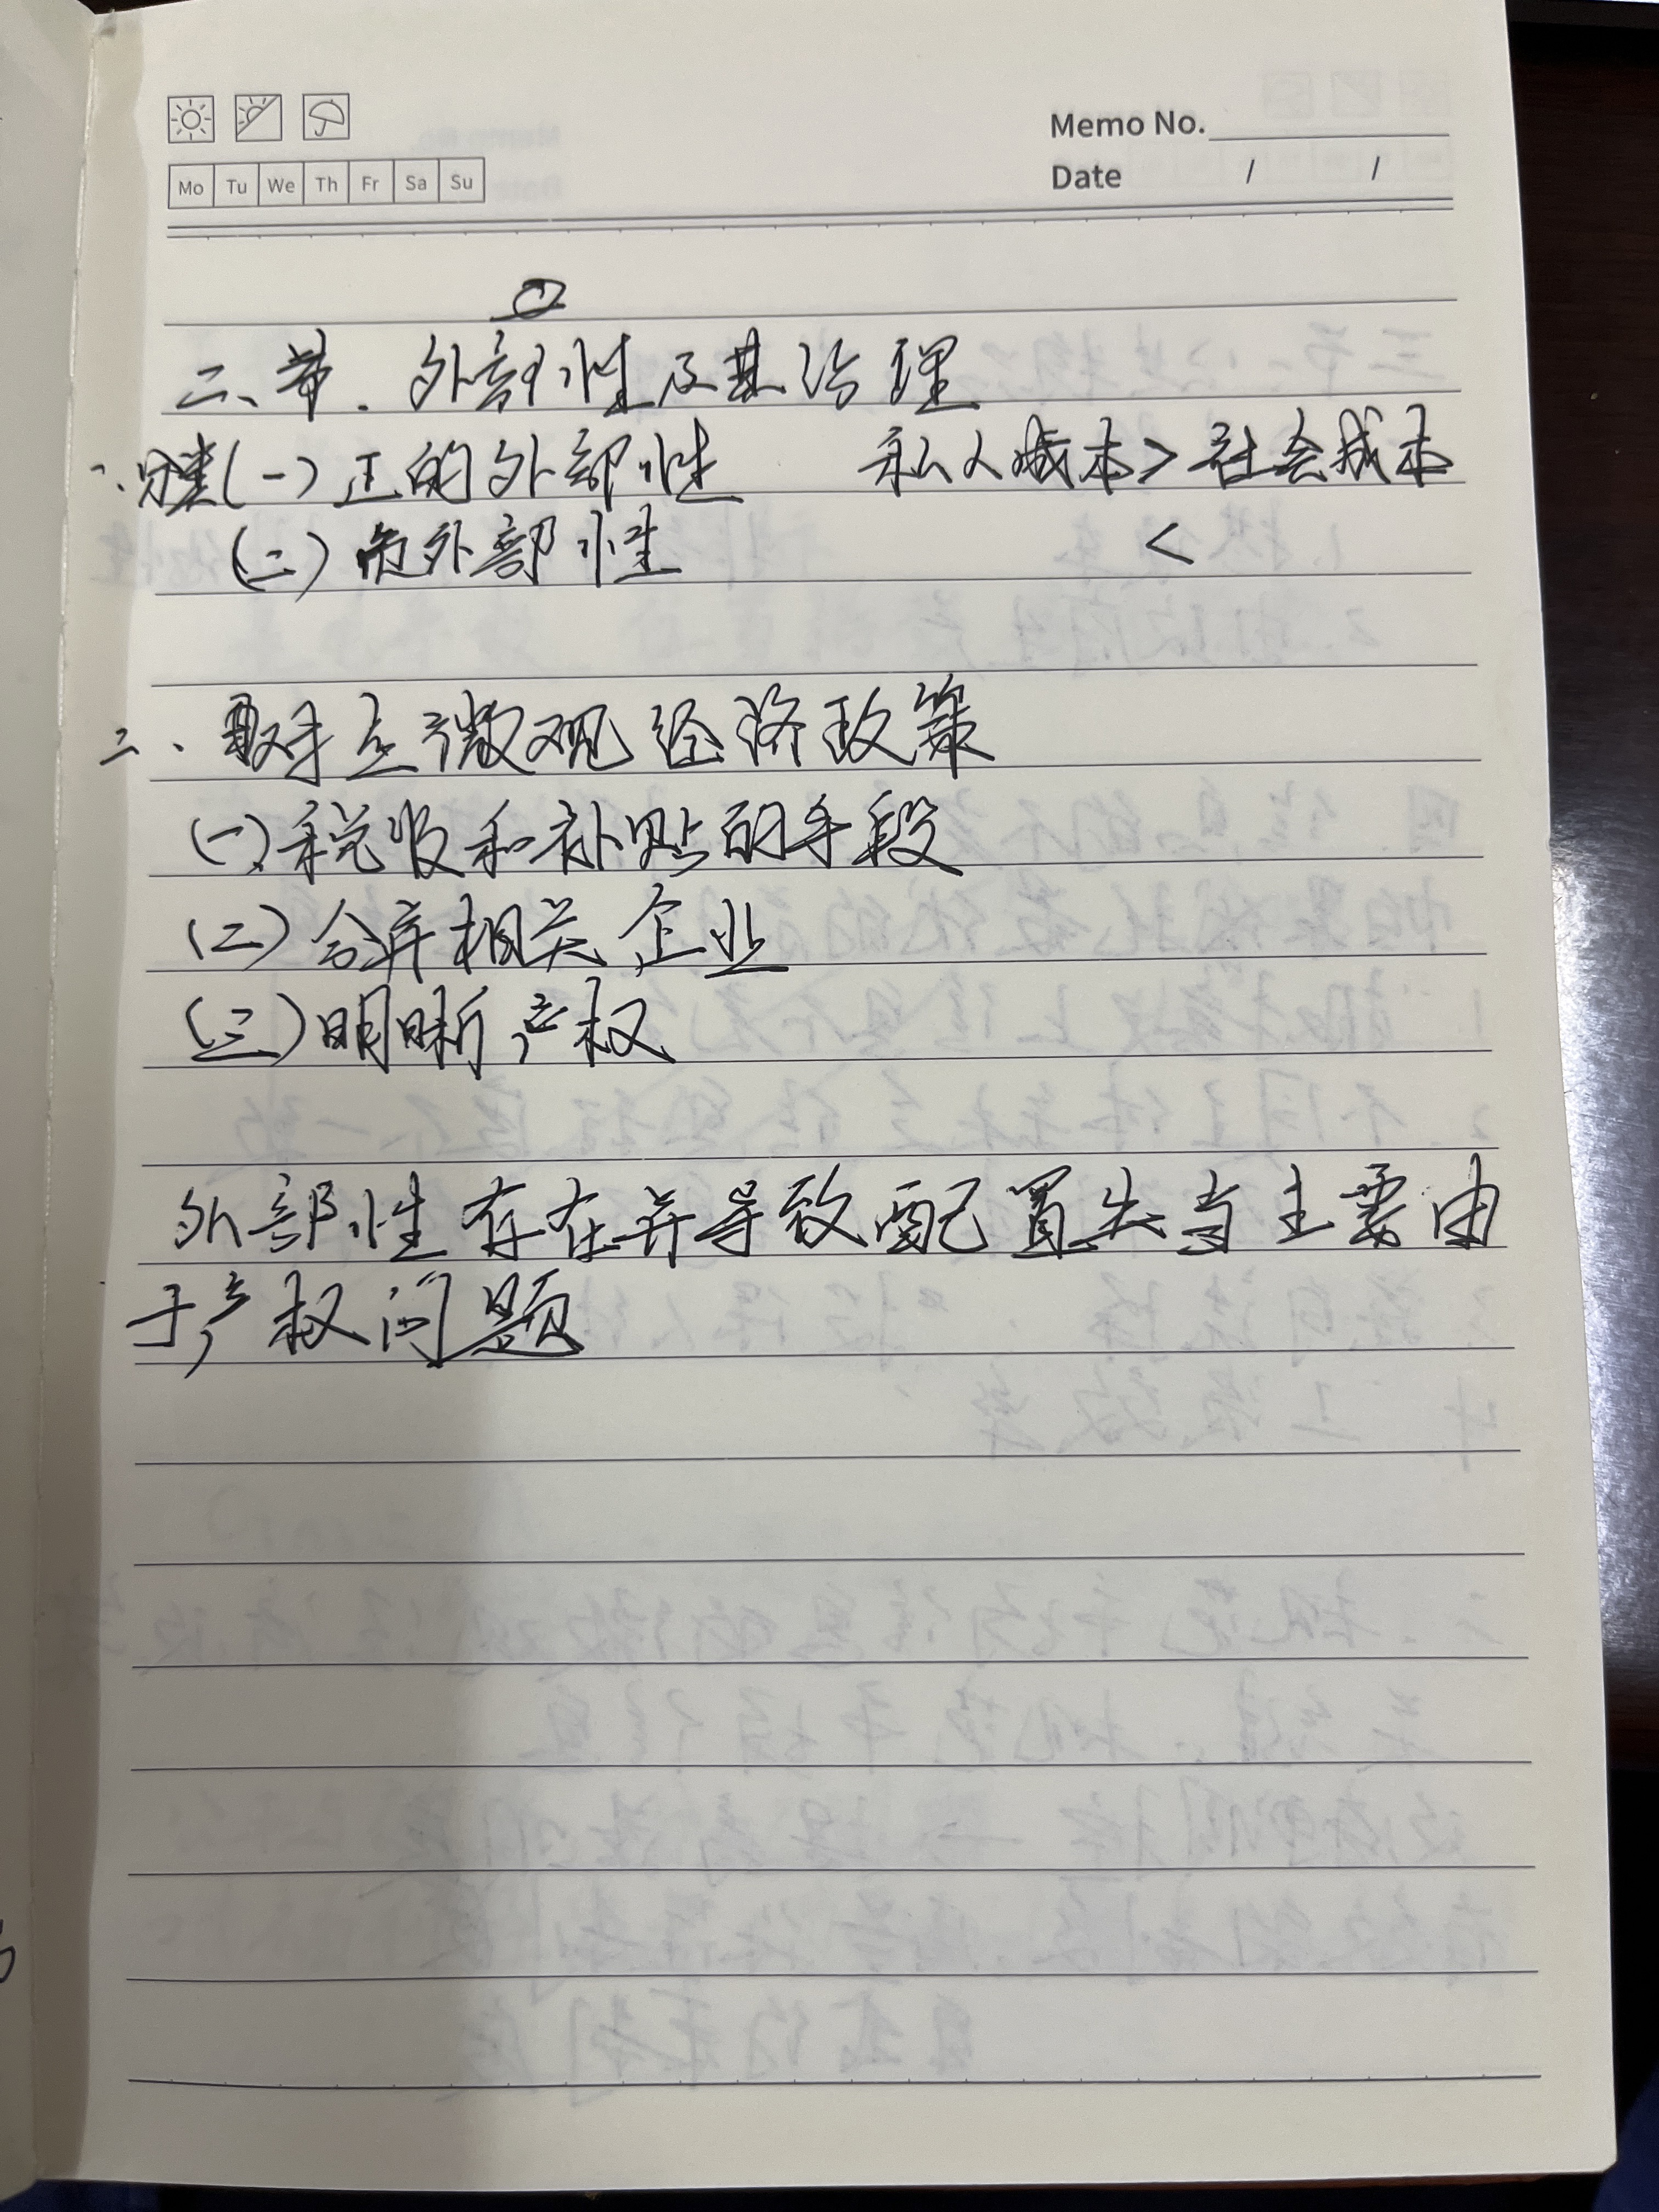 Memo No.
Mo Tu We Th Fr Sa Su
Date / /
二、节. 外部性及其治理
一. 分类(一) 正的外部性 私人成本 > 社会成本
(二) 负外部性 <
二、取对立微观经济政策
(一) 税收和补贴的手段
(二) 合并相关企业
(三) 明晰产权
外部性存在并导致配置失当主要由
于产权问题